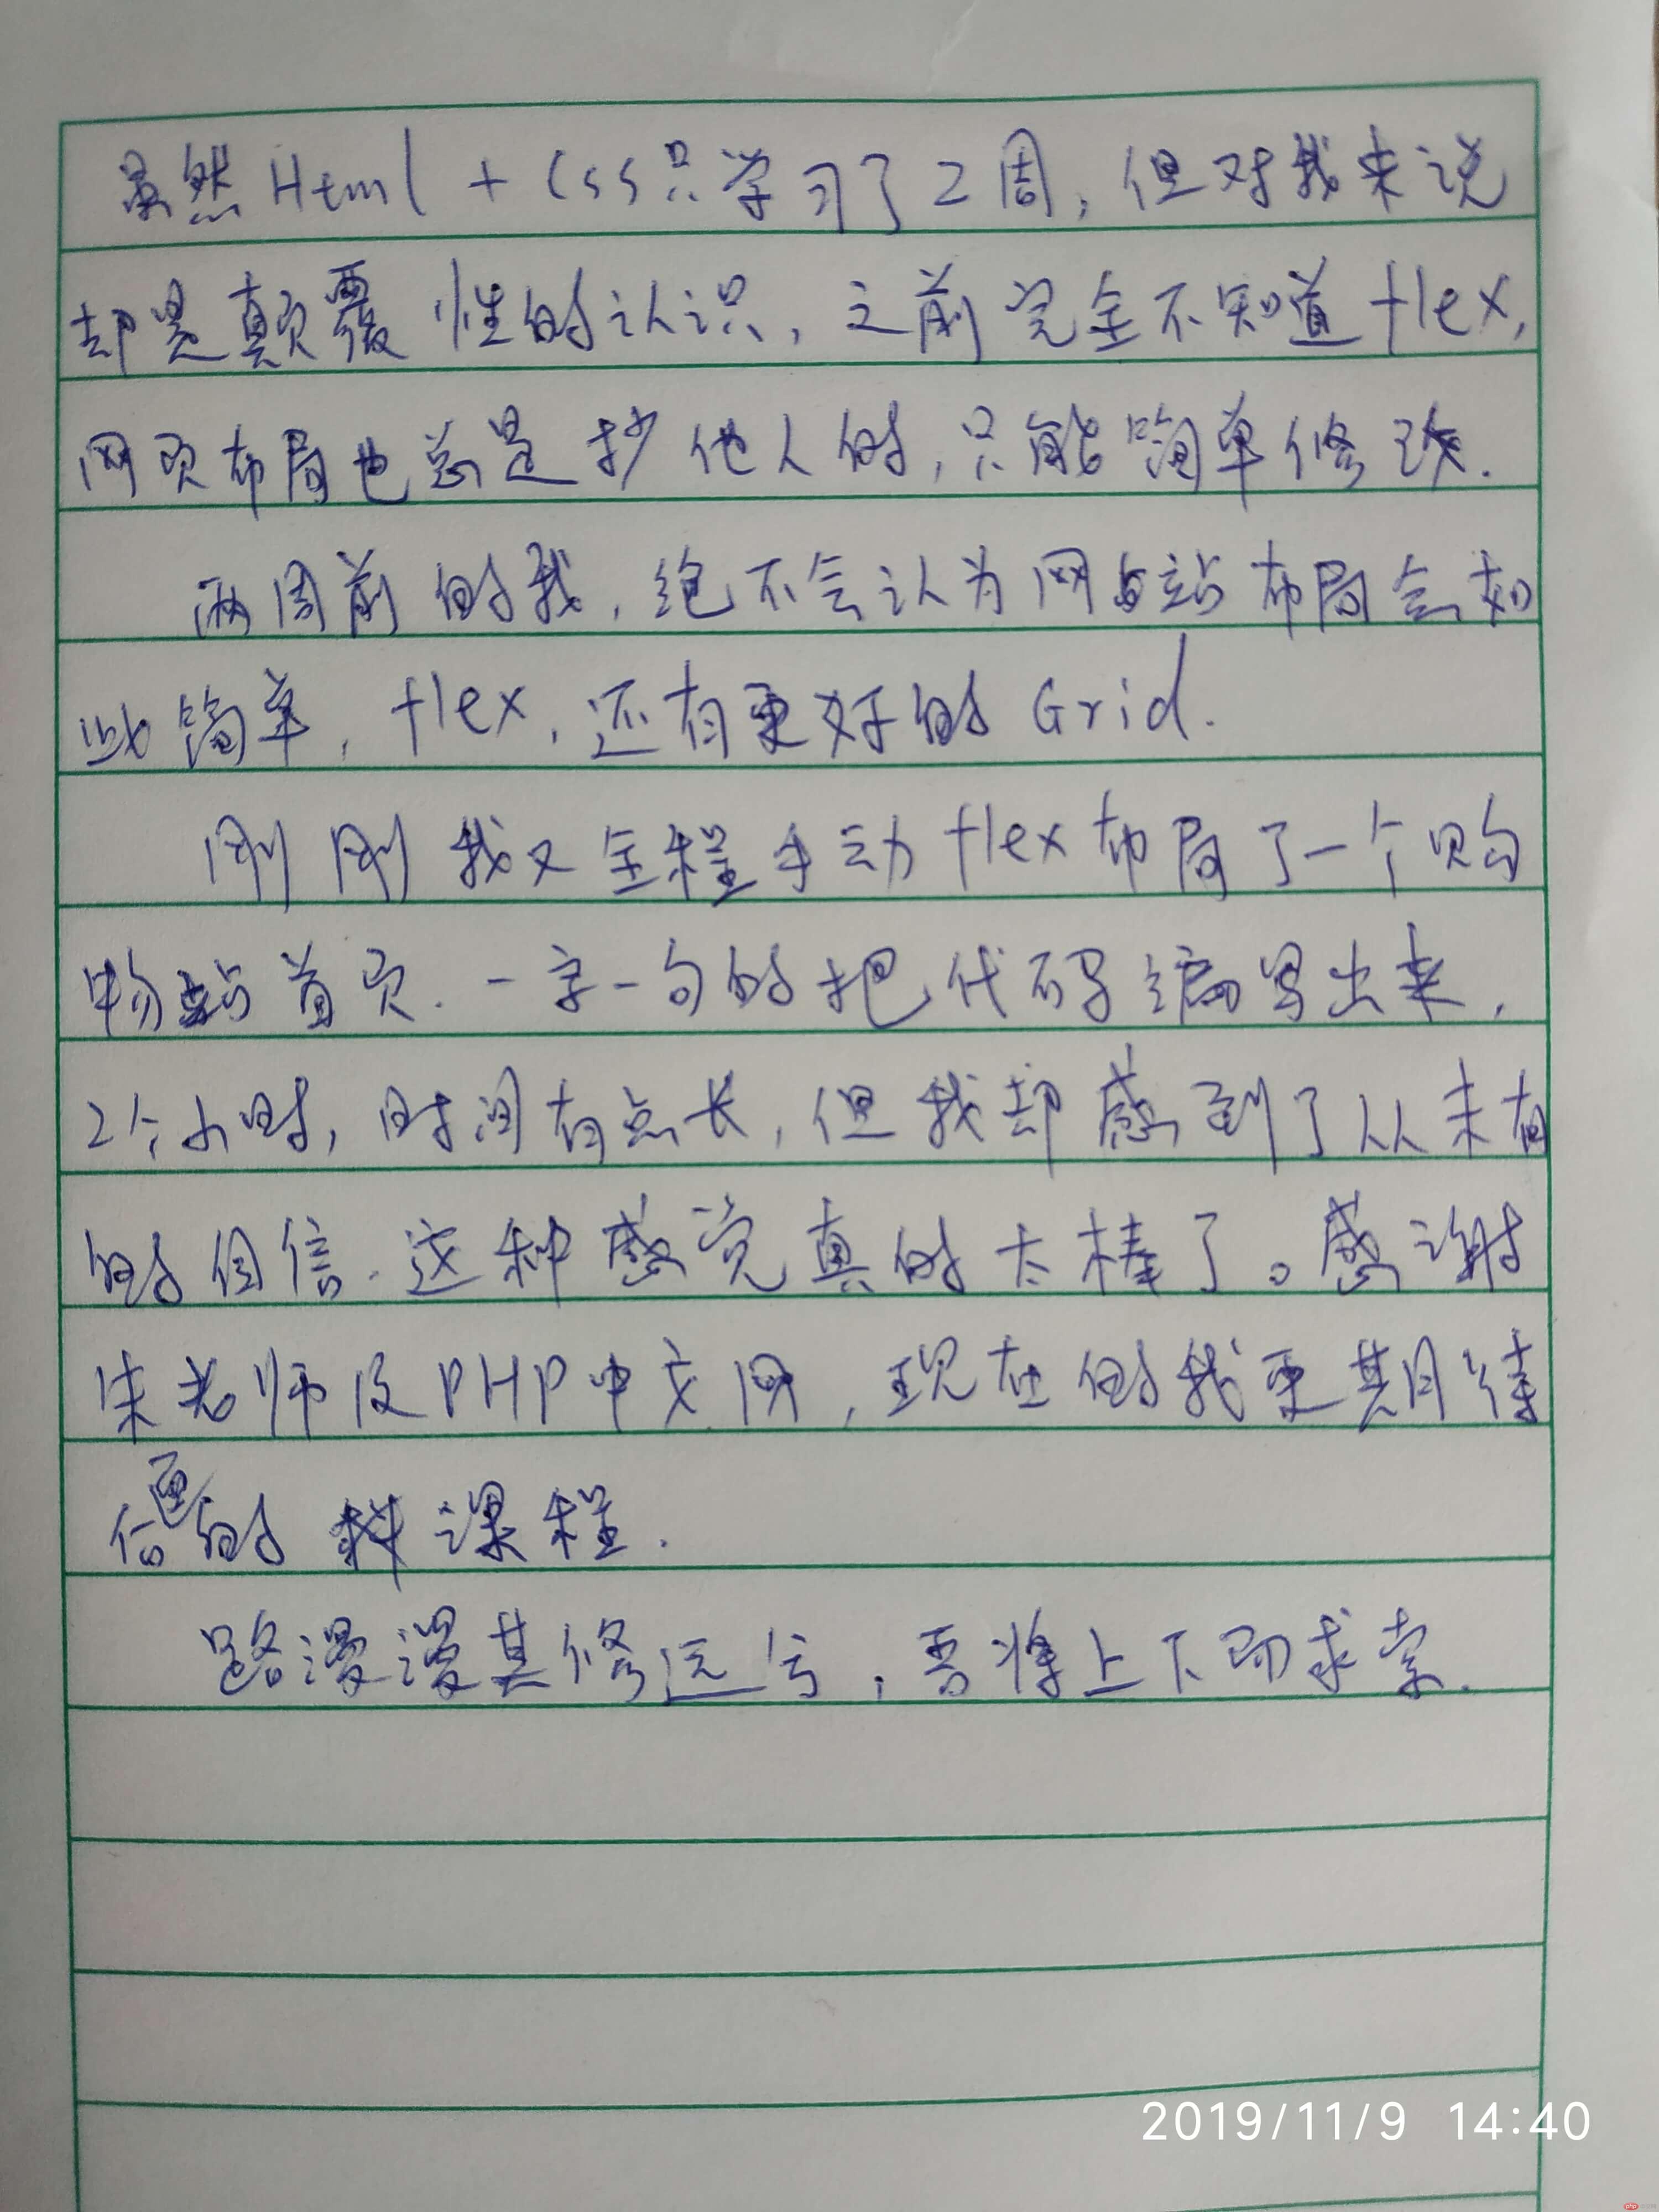 虽然Html + Css只学习了2周，但对我来说
却是颠覆性的认识，之前完全不知道flex,
网页布局也总是抄他人的，只能简单修改.
两周前的我，绝不会认为网站布局会如
此简单，flex，还有更好的Grid.
刚刚我又全程手动flex布局了一个购
物站首页.一字一句的把代码编写出来，
2个小时，时间有点长，但我却感到了从未有
的自信.这种感觉真的太棒了。感谢
朱老师及PHP中文网，现在的我更期待
后面的课程.
路漫漫其修远兮，吾将上下而求索.
2019/11/9 14:40
php